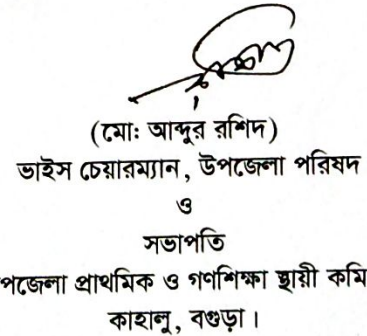 (মো: আব্দুর রশিদ)
ভাইস চেয়ারম্যান, উপজেলা পরিষদ
ও
সভাপতি
পজেলা প্রাথমিক ও গণশিক্ষা স্থায়ী কমি
কাহালু, বগুড়া।